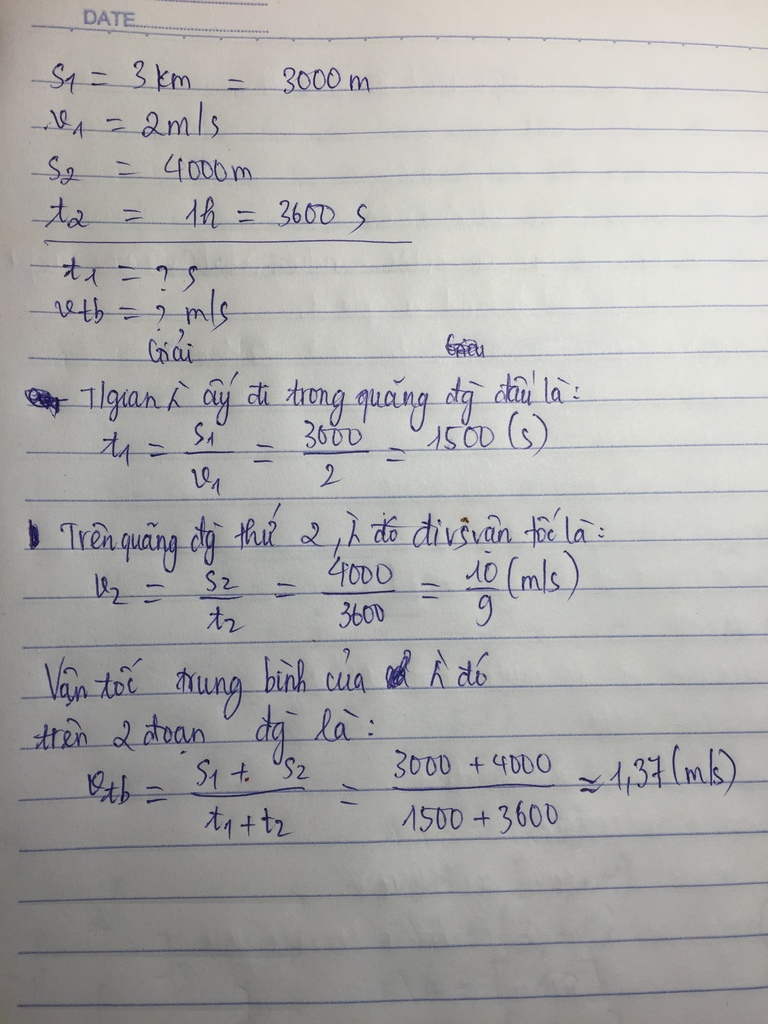 DATE
s1 = 3 km = 3000 m
v1 = 2m/s
s2 = 4000m
t2 = 1h = 3600 s
t1 = ? s
vtb = ? m/s
Giải
T/gian λ ấy đi trong quãng đg đầu là:
t1 = s1/v1 = 3000/2 = 1500 (s)
Trên quãng đg thứ 2, λ đó đi vs vận tốc là:
v2 = s2/t2 = 4000/3600 = 10/9 (m/s)
Vận tốc trung bình của λ đó
trên 2 đoạn đg là:
vtb = s1 + s2/t1 + t2 = 3000 + 4000/1500 + 3600 ≈ 1,37 (m/s)